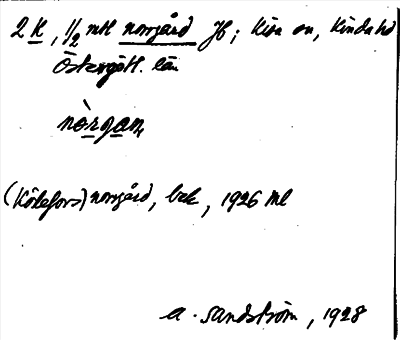 2 K, 1/2 mtl norrgård JB; Kisa sn, Kinda hd
Östergötl. län
nòrgan,
(Kölefors) norrgård, bek, 1926 ml
A. Sandström, 1928